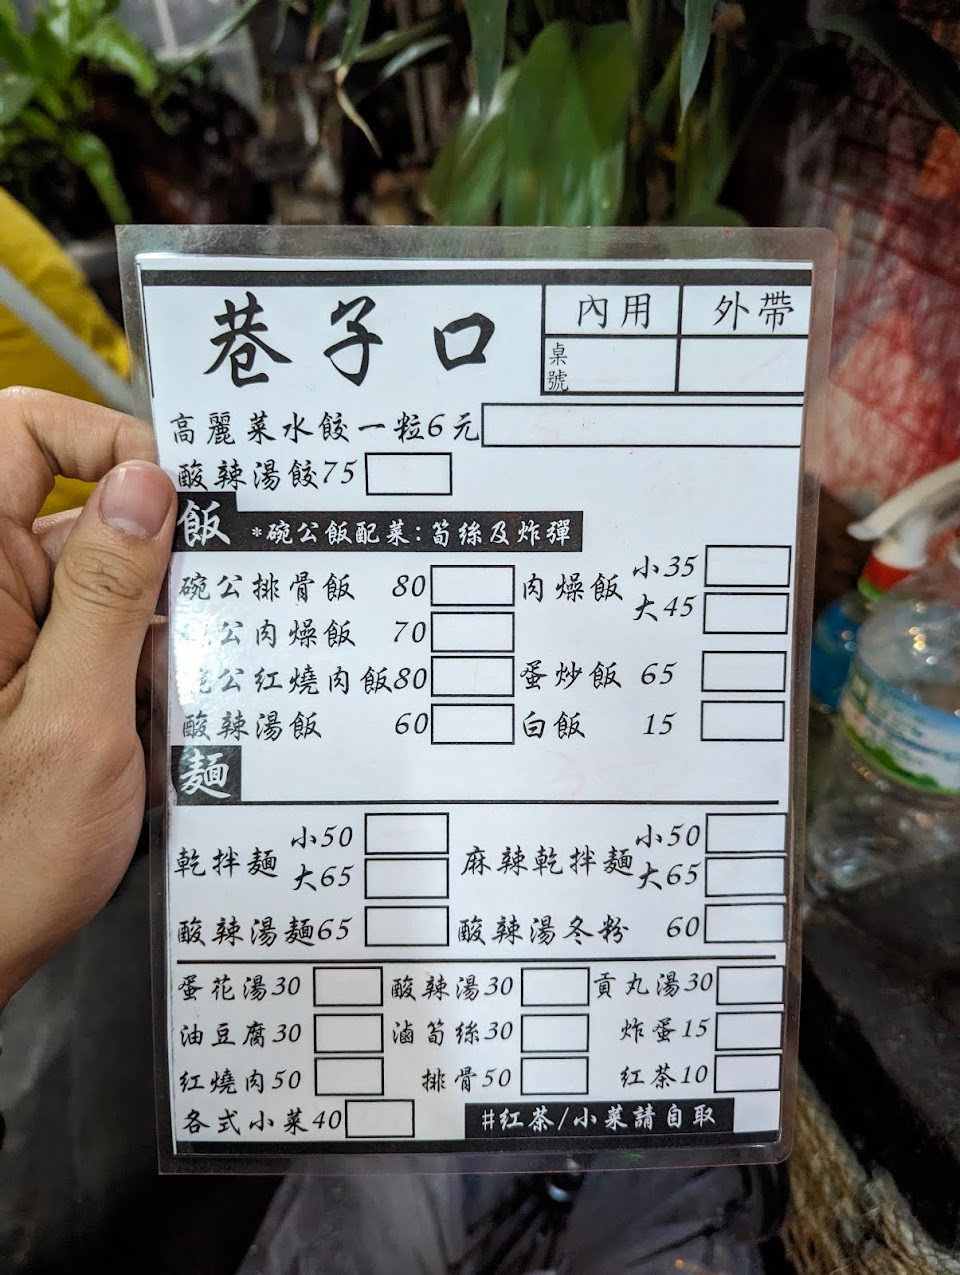 巷子口
內用 外帶
桌號
高麗菜水餃一粒6元
酸辣湯餃75
飯 *碗公飯配菜:筍絲及炸彈
碗公排骨飯 80 肉燥飯 小35
大45
公肉燥飯 70
碗公紅燒肉飯80 蛋炒飯 65
酸辣湯飯 60 白飯 15
麵
乾拌麵 小50 麻辣乾拌麵 小50
大65 大65
酸辣湯麵65 酸辣湯冬粉 60
蛋花湯30 酸辣湯30 貢丸湯30
油豆腐30 滷筍絲30 炸蛋15
紅燒肉50 排骨50 紅茶10
各式小菜40 #紅茶/小菜請自取